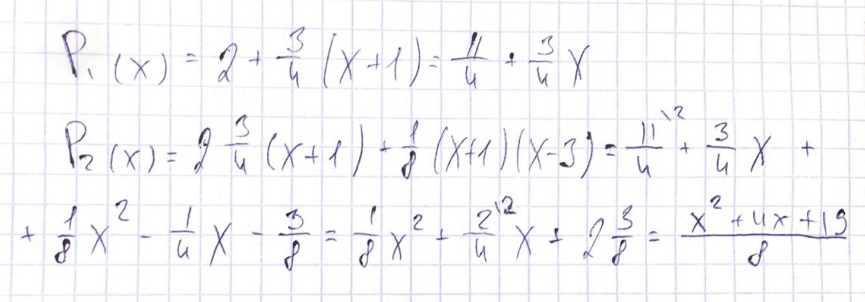 P₁(x) = 2 + 3/4 (x+1) = 11/4 + 3/4 x
P₂(x) = 2 3/4 (x+1) + 1/8 (x+1)(x-3) = 11/4 \2 + 3/4 x +
+ 1/8 x² - 1/4 x - 3/8 = 1/8 x² + 2/4 \2 x + 2 3/8 = (x² + 4x + 19)/8